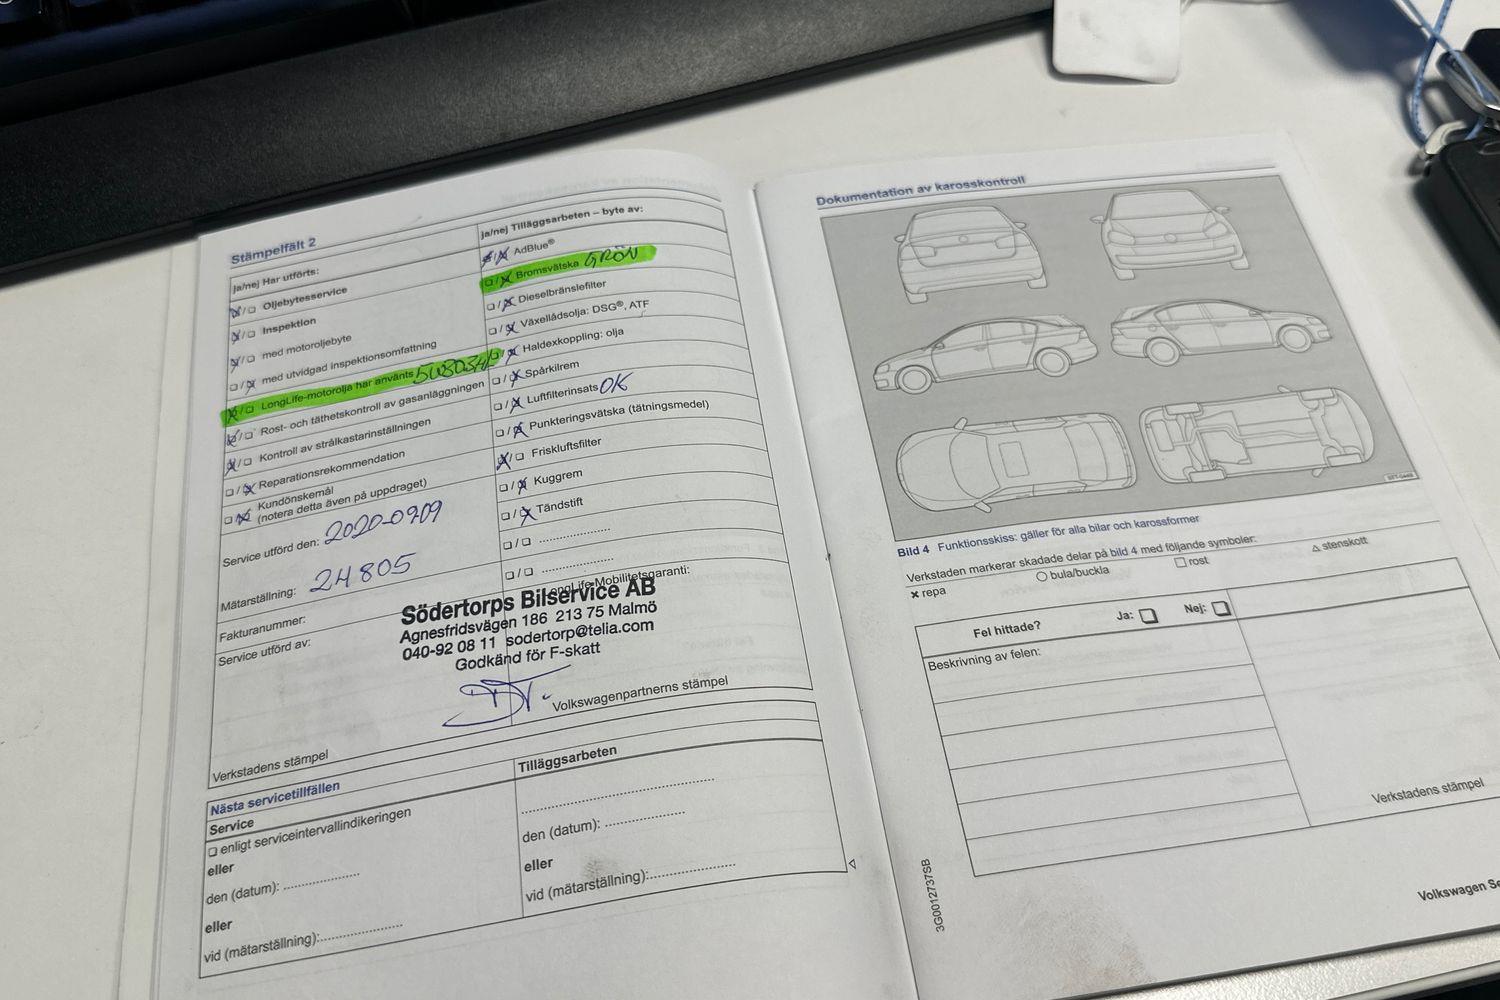 Stämpelfält 2
ja/nej Har utförts:
☒/☐ Oljebytesservice
☒/☐ Inspektion
☒/☐ med motoroljebyte
☐/☒ med utvidgad inspektionsomfattning
☒/☐ LongLife-motorolja har använts
☒/☐ Rost- och täthetskontroll av gasanläggningen
☒/☐ Kontroll av strålkastarinställningen
☐/☒ Reparationsrekommendation
☐/☒ Kundönskemål
(notera detta även på uppdraget)
Service utförd den: 2020-0909
Mätarställning: 24805
Fakturanummer:
Service utförd av:
Verkstadens stämpel
ja/nej Tilläggsarbeten – byte av:
☒/☒ AdBlue®
☐/☒ Bromsvätska GRÖN
☐/☒ Dieselbränslefilter
☐/☒ Växellådsolja: DSG®, ATF
☐/☒ Haldexkoppling: olja
☐/☒ Spårkilrem
☐/☒ Luftfilterinsats OK
☐/☒ Punkteringsvätska (tätningsmedel)
☒/☐ Friskluftsfilter
☐/☒ Kuggrem
☐/☒ Tändstift
☐/☐ ..................
☐/☐ ..................
LongLife-Mobilitetsgaranti:
Södertorps Bilservice AB
Agnesfridsvägen 186 213 75 Malmö
040-92 08 11 sodertorp@telia.com
Godkänd för F-skatt
Volkswagenpartnerns stämpel
Nästa servicetillfällen
Service
☐ enligt serviceintervallindikeringen
eller
den (datum): ..................
eller
vid (mätarställning):..................
Tilläggsarbeten
..................
den (datum): ..................
eller
vid (mätarställning):..................
Dokumentation av karosskontroll
Bild 4 Funktionsskiss: gäller för alla bilar och karossformer
Verkstaden markerar skadade delar på bild 4 med följande symboler:
✖ repa ○ bula/buckla ☐ rost △ stenskott
Fel hittade? Ja: ☐ Nej: ☐
Beskrivning av felen:
Verkstadens stämpel
3G0012737SB
Volkswagen